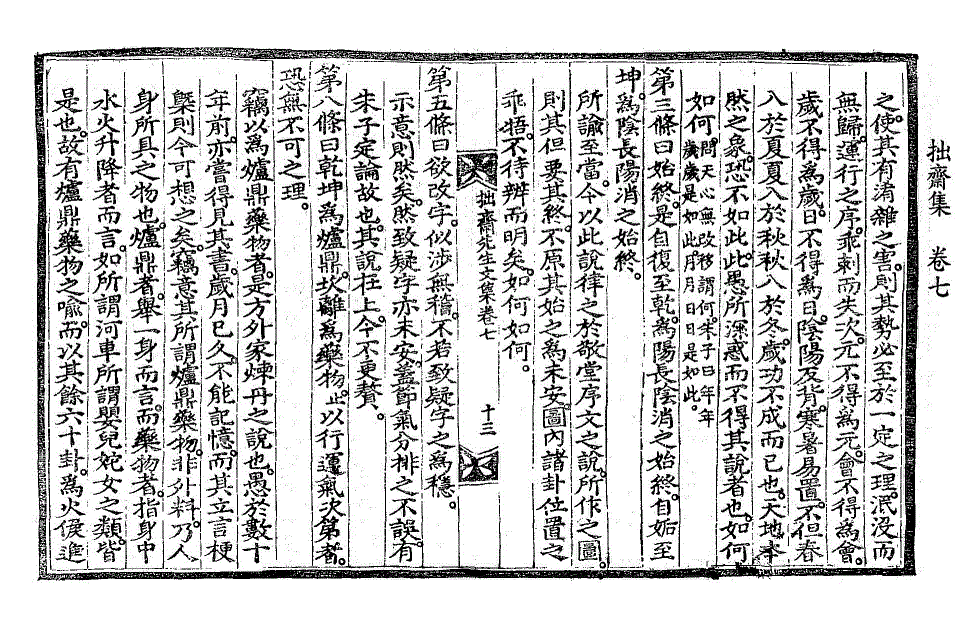 拙齋集　卷七
之使其有淆雜之害則其勢必至於一定之理泯沒而
無歸運行之序乖剌而失次元不得爲元會不得爲會
歲不得爲歲日不得爲日陰陽反背寒暑易置不但春
入於夏夏入於秋秋入於冬歲功不成而已也天地本
然之象恐不如此此愚所深惑而不得其說者也如何
如何問天心無改移謂何朱子曰年年歲歲是如此月月日日是如此
第三條曰始終是自復至乾爲陽長陰消之始終自姤至
坤爲陰長陽消之始終
所諭至當今以此說律之於敬堂序文之說所作之圖
則其但要其終不原其始之爲未安圖內諸卦位置之
乖牾不待辨而明矣如何如何
拙齋先生文集卷七　十三
第五條曰欲改字似涉無稽不若致疑字之爲穩
示意則然矣然致疑字亦未安蓋節氣分排之不誤有
朱子定論故也其說在上今不更贅
第八條曰乾坤爲爐鼎坎離爲藥物止以行運氣次第者
恐無不可之理
竊以爲爐鼎藥物者是方外家煉丹之說也愚於數十
年前亦嘗得見其書歲月已久不能記憶而其立言梗
槩則今可想之矣竊意其所謂爐鼎藥物非外料乃人
身所具之物也爐鼎者舉一身而言而藥物者指身中
水火升降者而言如所謂河車所謂嬰兒姹女之類皆
是也故有爐鼎藥物之喻而以其餘六十卦爲火候進